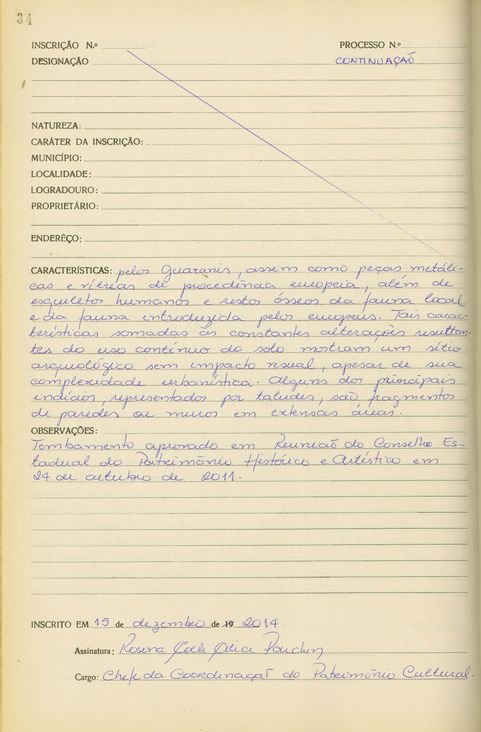 34
INSCRIÇÃO N.º PROCESSO N.º
DESIGNAÇÃO CONTINUAÇÃO
NATUREZA:
CARÁTER DA INSCRIÇÃO:
MUNICÍPIO:
LOCALIDADE:
LOGRADOURO:
PROPRIETÁRIO:
ENDERÊÇO:
CARACTERÍSTICAS: pelos Guaranis, assim como peças metáli-
cas e vítreas de procedência europeia, além de
esqueletos humanos e restos ósseos da fauna local
e da fauna introduzida pelos europeus. Tais carac-
terísticas somadas às constantes alterações resultan-
tes do uso contínuo do solo mostram um sítio
arqueológico sem impacto visual, apesar de sua
complexidade urbanística. Alguns dos principais
indícios, representados por taludes, são fragmentos
de paredes ou muros em extensas áreas.
OBSERVAÇÕES:
Tombamento aprovado em Reunião do Conselho Es-
tadual do Patrimônio Histórico e Artístico em
24 de outubro de 2011.
INSCRITO EM 15 de dezembro de 19 2014
Assinatura: Rosina
Cargo: Chefe da Coordenação do Patrimônio Cultural.